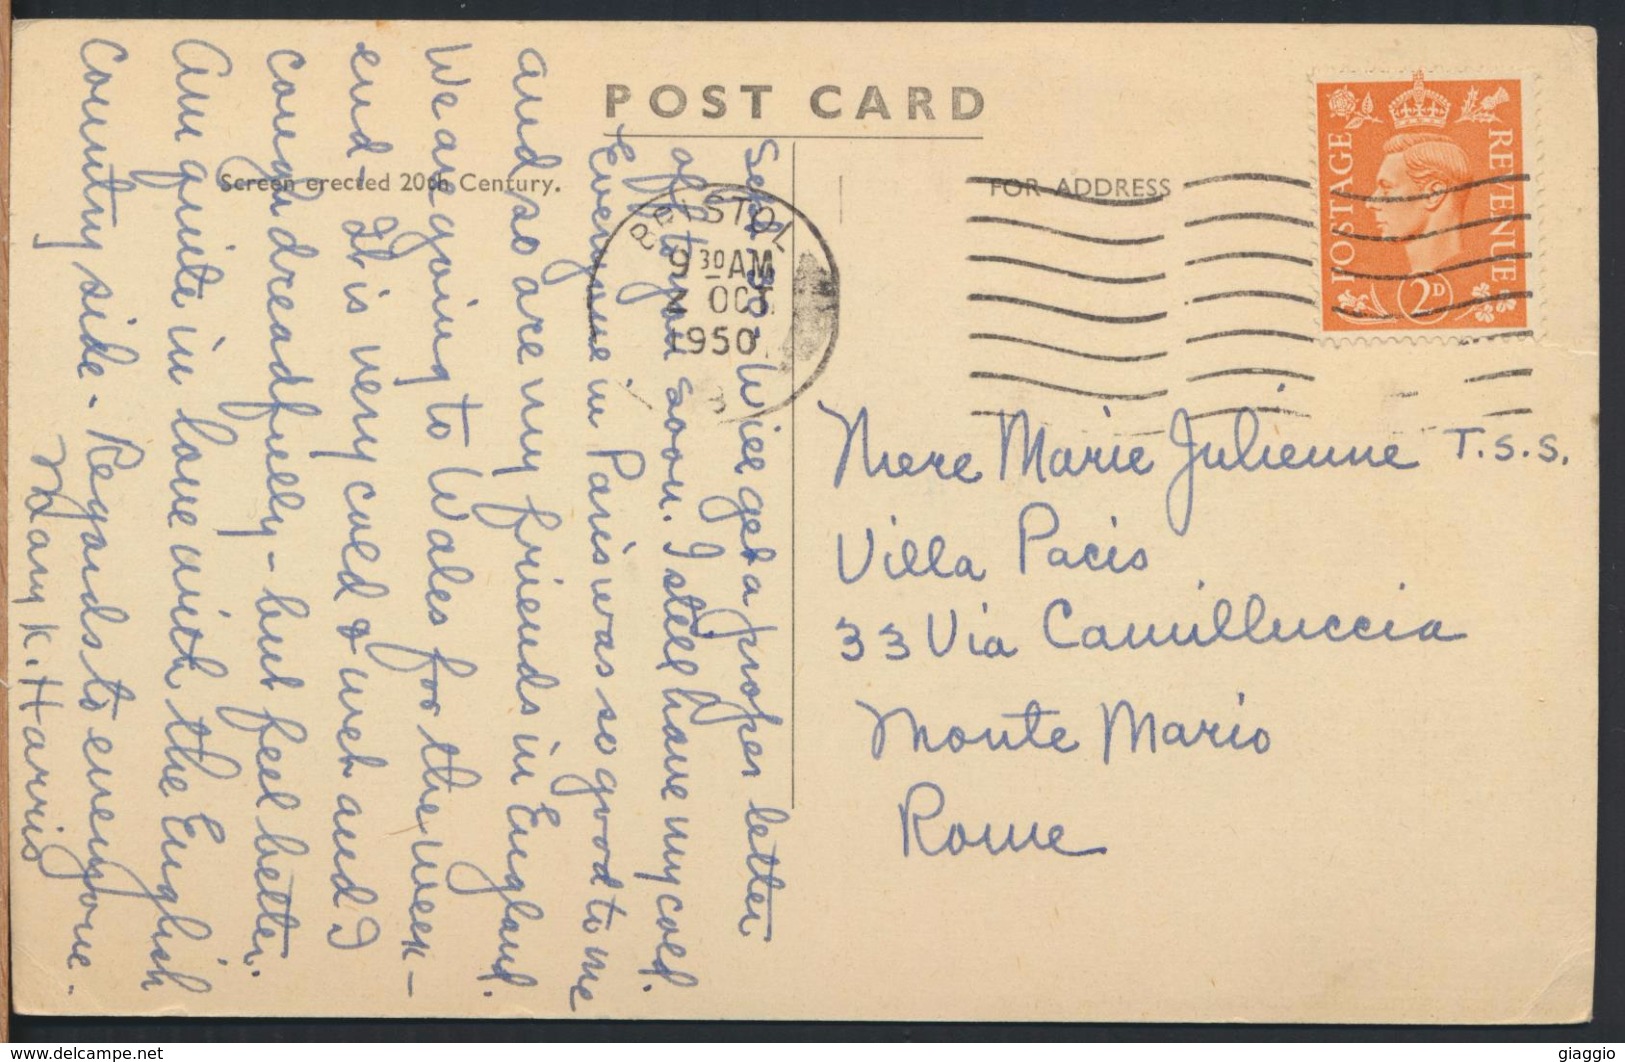 POST CARD
Screen erected 20th Century.
FOR ADDRESS
BRISTOL
9 30 AM
2 OCT
1950
POSTAGE
REVENUE
2D
Sept 30. Will get a proper letter
off to you soon. I still have my cold.
Everyone in Paris was so good to me
and so are my friends in England.
We are going to Wales for the week-
end - It is very cold & wet and I
cough dreadfully - but feel better.
Am quite in love with the English
country side - Regards to everyone.
Mary K. Harris
Mere Marie Julienne T.S.S.
Villa Pacis
33 Via Camilluccia
Monte Mario
Rome
www.delcampe.net
giaggio